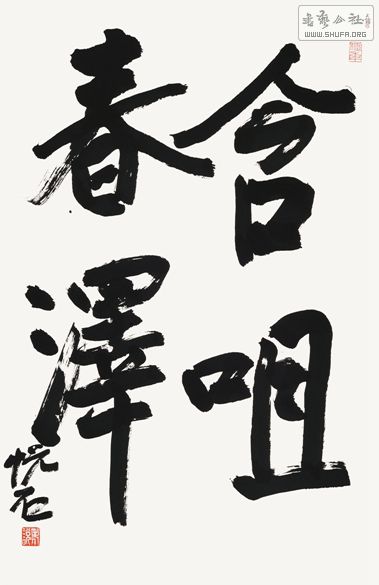 含咀
春澤
悅石
书艺公社
WWW.SHUFA.ORG